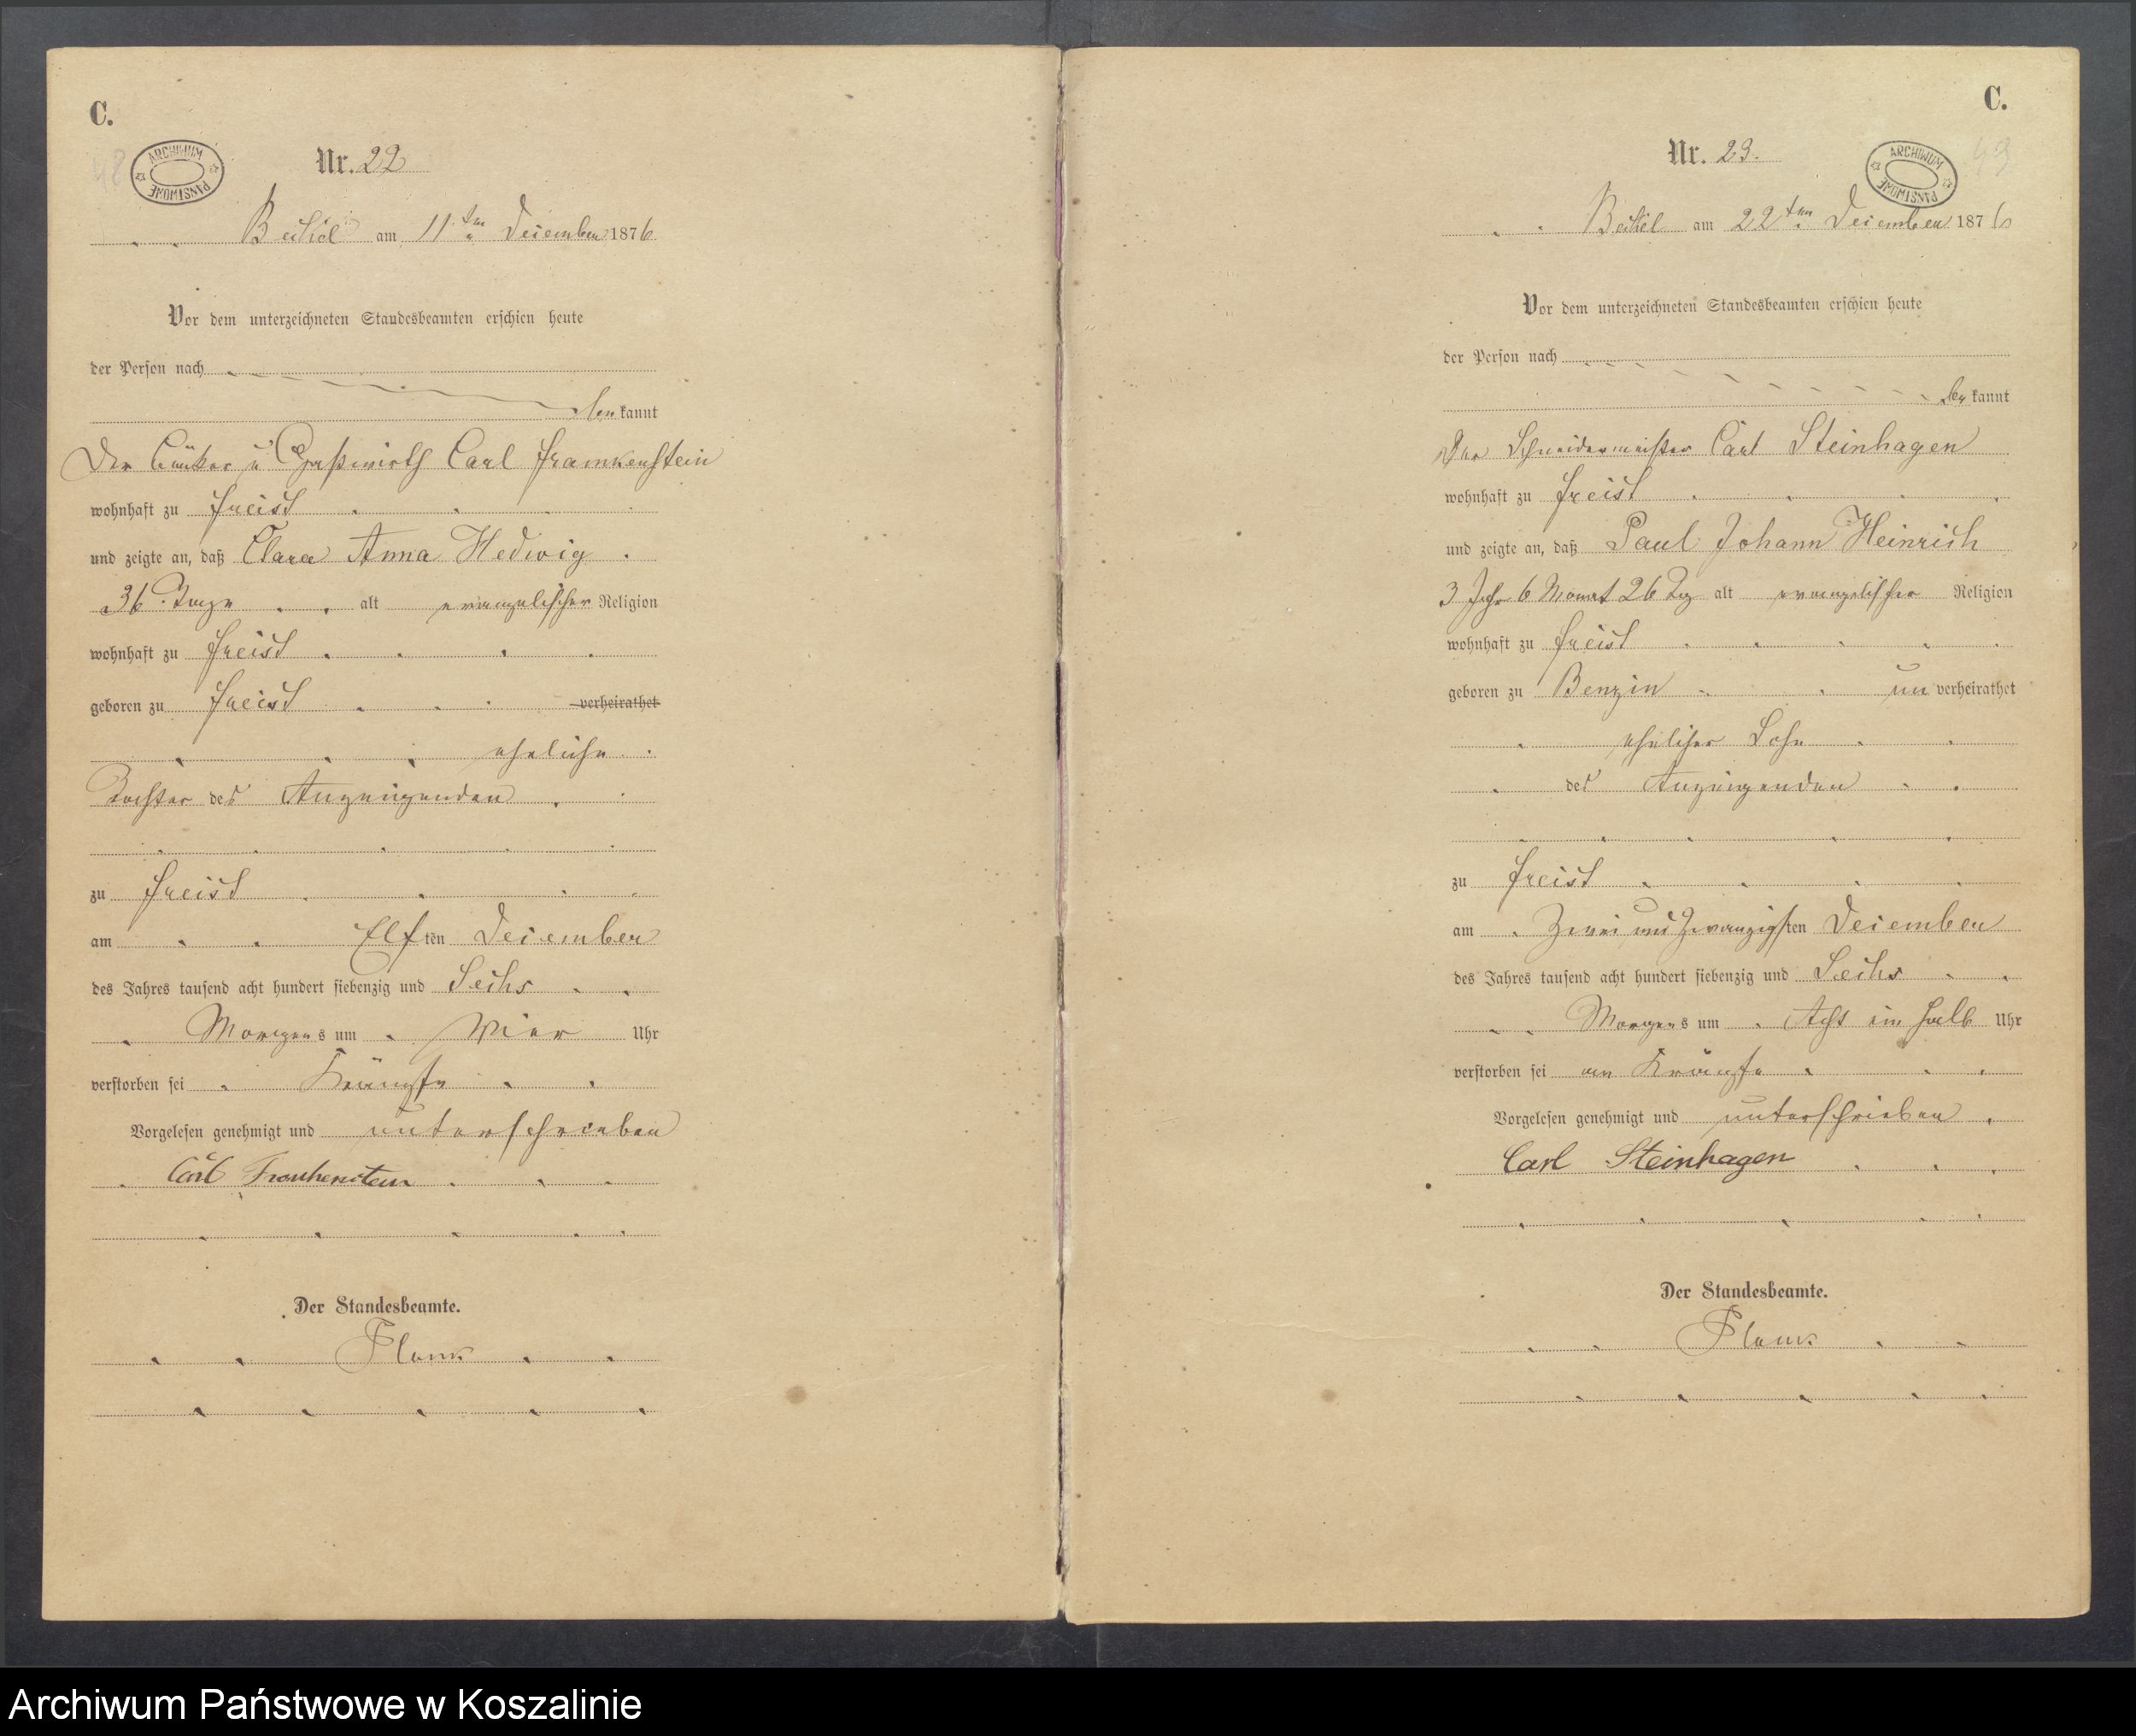 C.
ARCHIWUM PAŃSTWOWE
48
Nr. 22
Beitkel am 11ten December 1876
Vor dem unterzeichneten Standesbeamten erschien heute
der Person nach
be kannt
Der Bäcker u Gastwirth Carl Frankenstein
wohnhaft zu Freist
und zeigte an, daß Clara Anna Hedwig
36 Tage alt evangelischer Religion
wohnhaft zu Freist
geboren zu Freist verheirathet
eheliche
Tochter des Anzeigenden
zu Freist
am Elften December
des Jahres tausend acht hundert siebenzig und Sechs
Morgens um Vier Uhr
verstorben sei Krämpfe
Vorgelesen genehmigt und unterschrieben
Carl Frankenstein
Der Standesbeamte.
Flank
C.
ARCHIWUM PAŃSTWOWE
49
Nr. 23.
Beitkel am 22ten December 1876
Vor dem unterzeichneten Standesbeamten erschien heute
der Person nach
be kannt
Der Schneidermeister Carl Steinhagen
wohnhaft zu Freist
und zeigte an, daß Paul Johann Heinrich
3 Jahr 6 Monat 26 Tag alt evangelischer Religion
wohnhaft zu Freist
geboren zu Benzin un verheirathet
ehelicher Sohn
des Anzeigenden
zu Freist
am Zwei und Zwanzigsten December
des Jahres tausend acht hundert siebenzig und Sechs
Morgens um Acht ein halb Uhr
verstorben sei an Krämpfe
Vorgelesen genehmigt und unterschrieben
Carl Steinhagen
Der Standesbeamte.
Flank
Archiwum Państwowe w Koszalinie